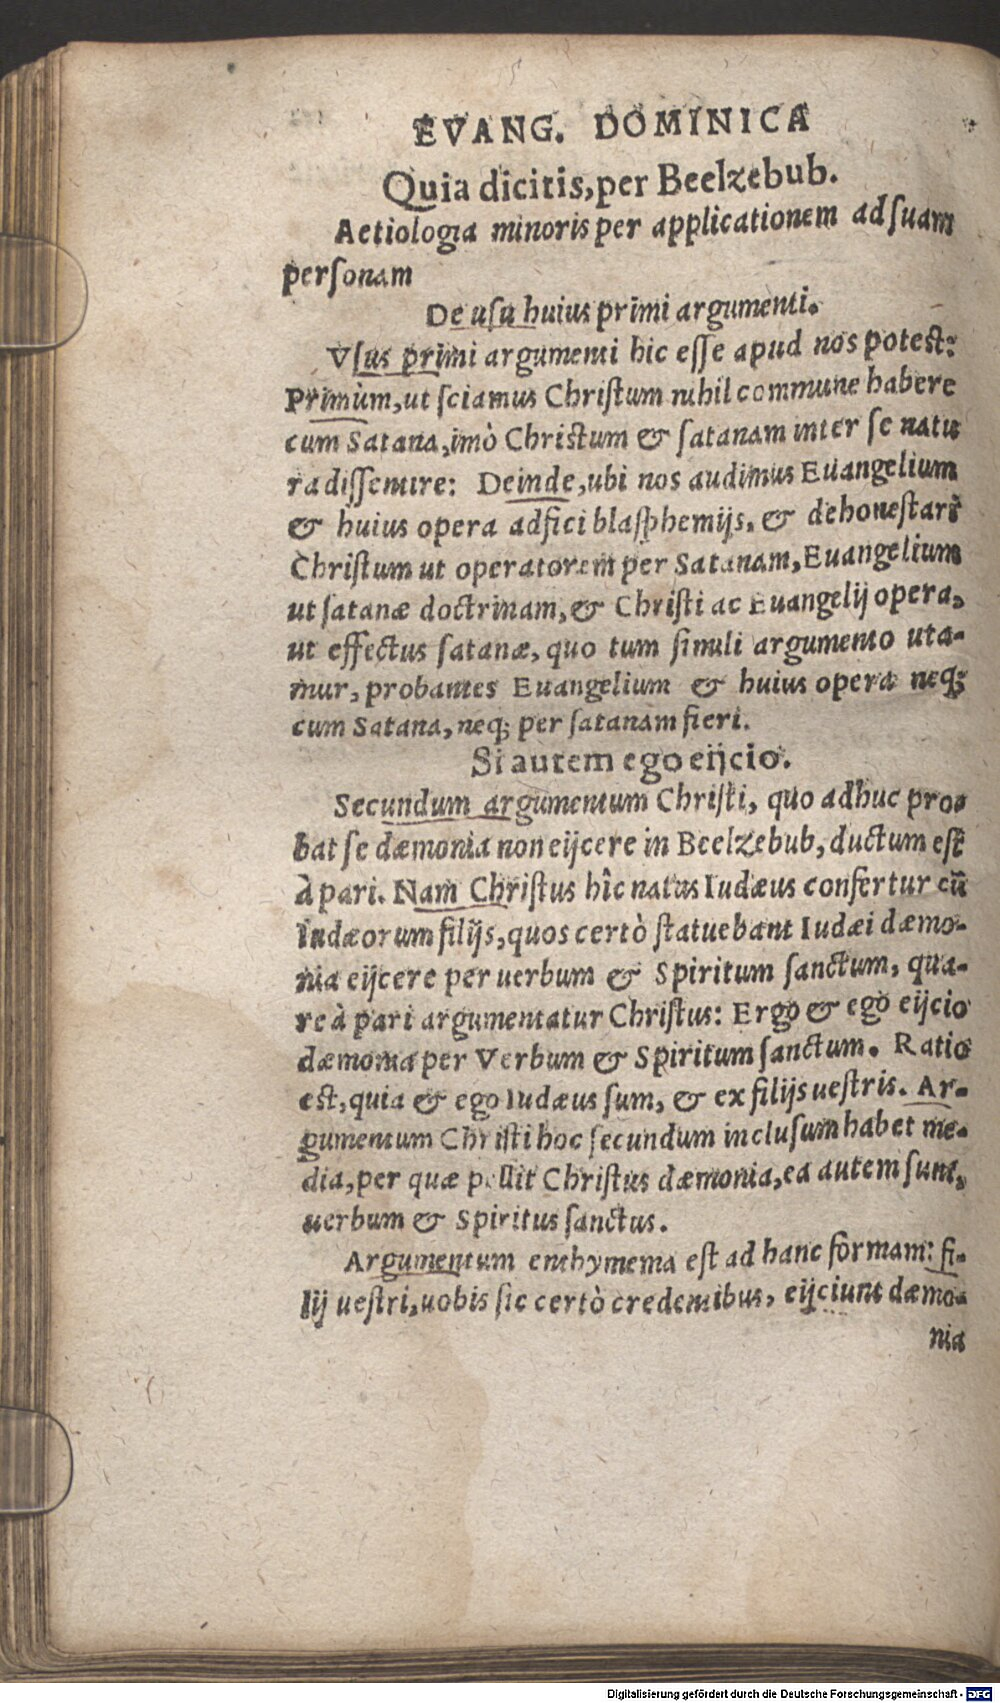 EVANG. DOMINICA
Quia dicitis, per Beelzebub.
Aetiologia minoris per applicationem ad ſuam
perſonam
De uſu huius primi argumenti.
Vſus primi argumenti hic eſſe apud nos poteſt:
Primùm, ut ſciamus Chriſtum nihil commune habere
cum Satana, imò Chriſtum & ſatanam inter ſe natu
ra diſſentire: Deinde, ubi nos audimus Euangelium
& huius opera adfici blaſphemijs, & dehoneſtari
Chriſtum ut operatorem per Satanam, Euangelium
ut ſatanæ doctrinam, & Chriſti ac Euangelij opera,
ut effectus ſatanæ, quo tum ſimili argumento uta-
mur, probantes Euangelium & huius opera neq;
cum Satana, neq; per ſatanam fieri.
Si autem ego eijcio.
Secundum argumentum Chriſti, quo adhuc pro-
bat ſe dæmonia non eijcere in Beelzebub, ductum eſt
à pari. Nam Chriſtus hîc natus Iudæus confertur cū
Iudæorum filijs, quos certò ſtatuebant Iudæi dæmo-
nia eijcere per uerbum & Spiritum ſanctum, qua-
re à pari argumentatur Chriſtus: Ergo & ego eijcio
dæmonia per Verbum & Spiritum ſanctum. Ratio
est, quia & ego Iudæus ſum, & ex filijs ueſtris. Ar-
gumentum Chriſti hoc ſecundum incluſum habet me-
dia, per quæ pellit Chriſtus dæmonia, ea autem ſunt,
uerbum & Spiritus ſanctus.
Argumentum enthymema eſt ad hanc formam: fi-
lij ueſtri, uobis ſic certò credentibus, eijciunt dæmo-
nia
Digitalisierung gefördert durch die Deutsche Forschungsgemeinschaft - DFG